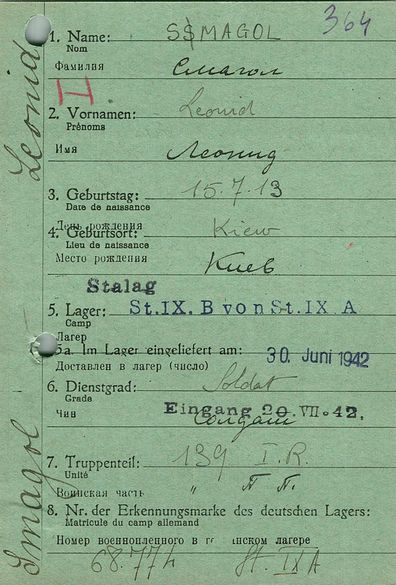 364
1. Name: SSMAGOL
Nom
Фамилия Смагол
2. Vornamen: Leonid
Prénoms
Имя Леонид
3. Geburtstag: 15.7.13
Date de naissance
День рождения
4. Geburtsort: Kiew
Lieu de naissance
Место рождения Киев
Stalag
5. Lager: St. IX. B von St. IX A
Camp
Лагер
5a. Im Lager eingeliefert am: 30. Juni 1942
Доставлен в лагер (число)
6. Dienstgrad: Soldat
Grade
Eingang 20. VII. 42.
Чин Солдат
7. Truppenteil: 139 I.R.
Unité
Воинская часть " П П.
8. Nr. der Erkennungsmarke des deutschen Lagers:
Matricule du camp allemand
Номер военнопленного в лагере
St. IX A
Leonid
Smagol